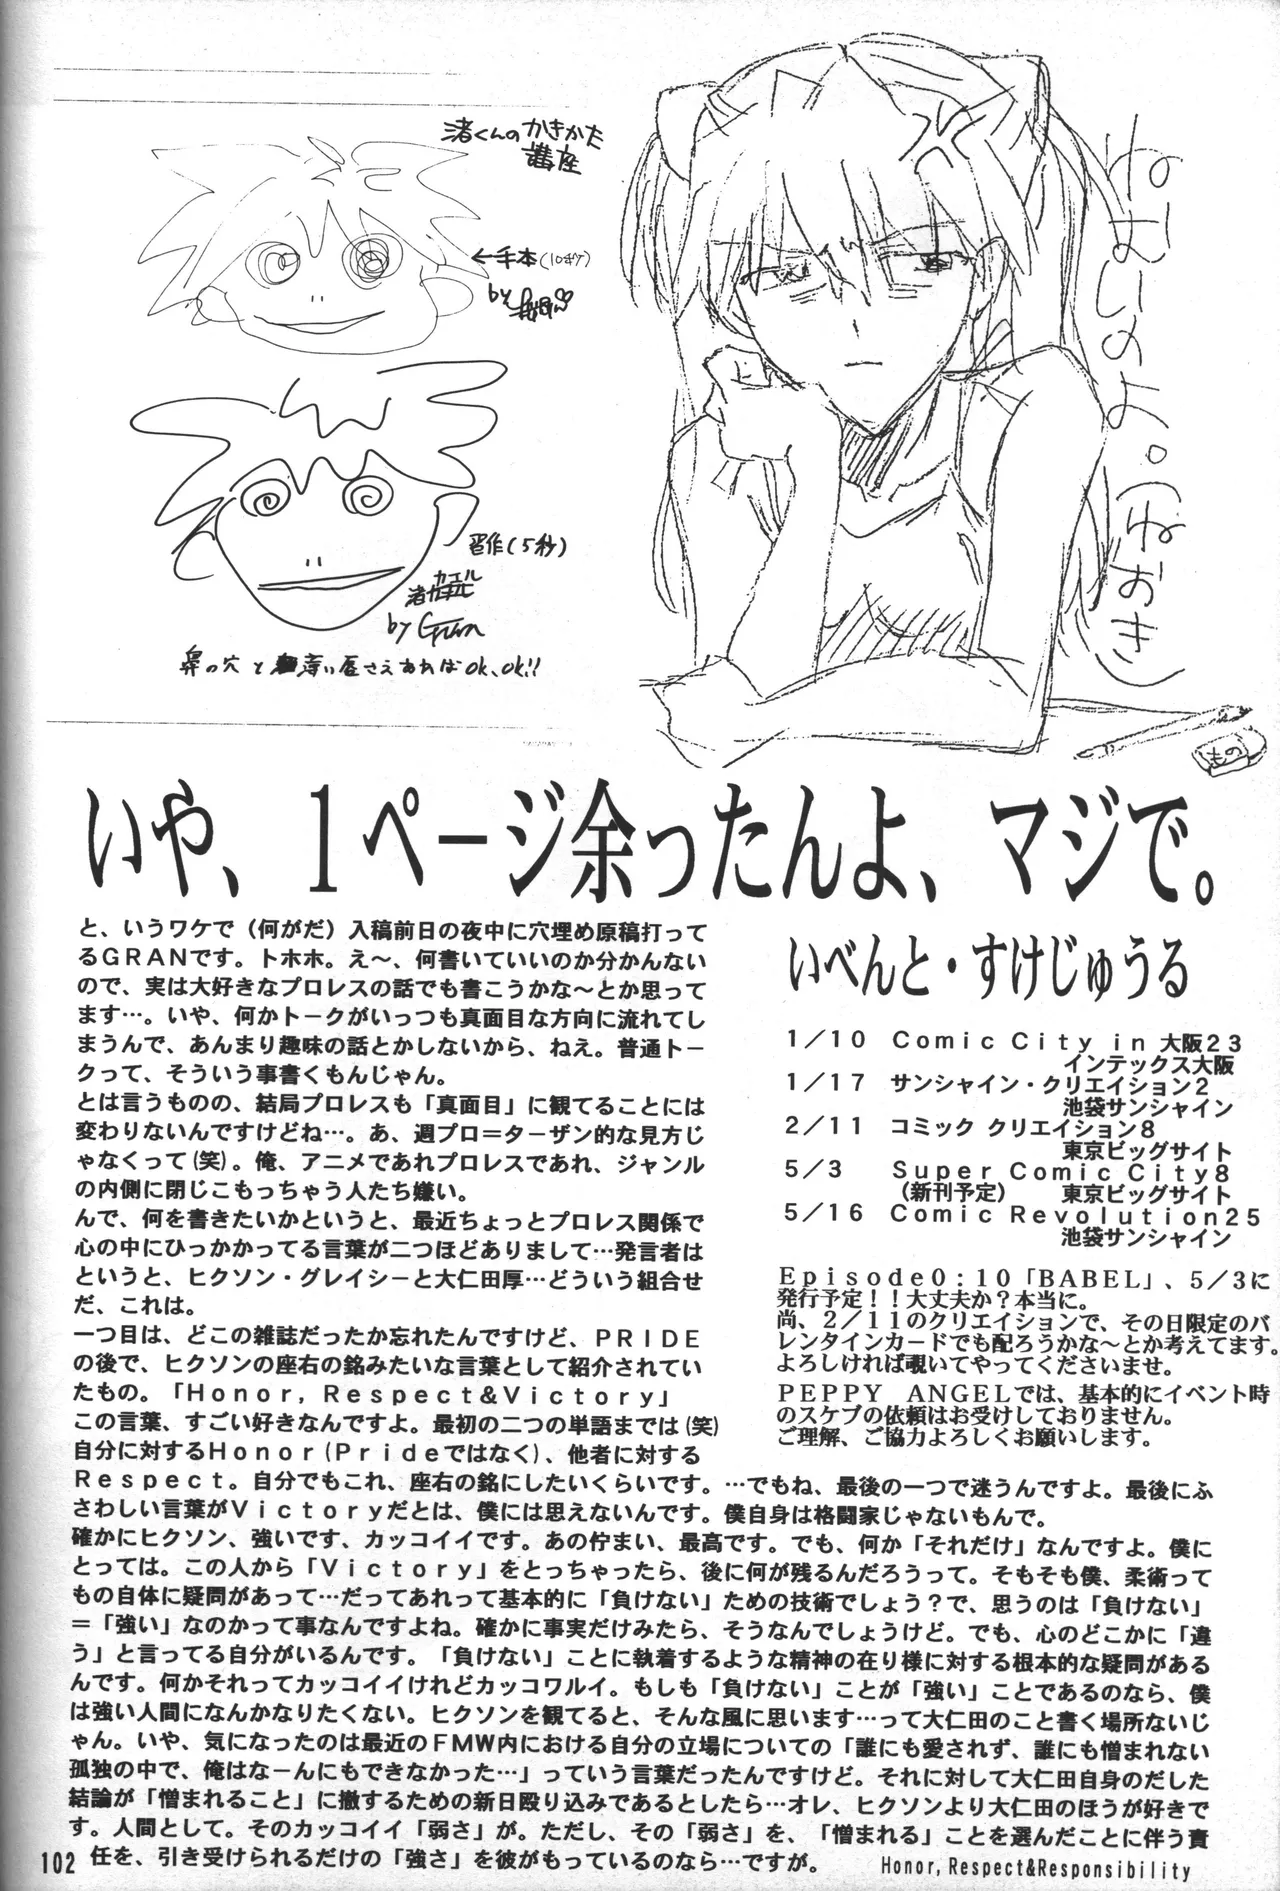 渚くんのかきかた
講座
←手本(10ギケ)
by
習作(5秒)
カエル
by Gran
鼻の穴と薄い唇さえあればOK、OK!!
ねーむいのよ。(ねおき)
もの
いや、1ページ余ったんよ、マジで。
と、いうワケで（何がだ）入稿前日の夜中に穴埋め原稿打って
るGRANです。トホホ。え～、何書いていいのか分かんない
ので、実は大好きなプロレスの話でも書こうかな～とか思って
ます…。いや、何かトークがいっつも真面目な方向に流れてし
まうんで、あんまり趣味の話とかしないから、ねえ。普通トー
クって、そういう事書くもんじゃん。
とは言うものの、結局プロレスも「真面目」に観てることには
変わりないんですけどね…。あ、週プロ＝ターザン的な見方じ
ゃなくって(笑)。俺、アニメであれプロレスであれ、ジャンル
の内側に閉じこもっちゃう人たち嫌い。
んで、何を書きたいかというと、最近ちょっとプロレス関係で
心の中にひっかかってる言葉が二つほどありまして…発言者は
というと、ヒクソン・グレイシーと大仁田厚…どういう組合せ
だ、これは。
一つ目は、どこの雑誌だったか忘れたんですけど、PRIDE
の後で、ヒクソンの座右の銘みたいな言葉として紹介されてい
たもの。「Honor, Respect&Victory」
この言葉、すごい好きなんですよ。最初の二つの単語までは(笑)
自分に対するHonor(Prideではなく)、他者に対する
Respect。自分でもこれ、座右の銘にしたいくらいです。…でもね、最後の一つで迷うんですよ。最後にふ
さわしい言葉がVictoryだとは、僕には思えないんです。僕自身は格闘家じゃないもんで。
確かにヒクソン、強いです、カッコイイです。あの佇まい、最高です。でも、何か「それだけ」なんですよ。僕に
とっては。この人から「Victory」をとっちゃったら、後に何が残るんだろうって。そもそも僕、柔術って
もの自体に疑問があって…だってあれって基本的に「負けない」ための技術でしょう？で、思うのは「負けない」
＝「強い」なのかって事なんですよね。確かに事実だけみたら、そうなんでしょうけど。でも、心のどこかに「違
う」と言ってる自分がいるんです。「負けない」ことに執着するような精神の在り様に対する根本的な疑問がある
んです。何かそれってカッコイイけれどカッコワルイ。もしも「負けない」ことが「強い」ことであるのなら、僕
は強い人間になんかなりたくない。ヒクソンを観てると、そんな風に思います…って大仁田のこと書く場所ないじ
ゃん。いや、気になったのは最近のFMW内における自分の立場についての「誰にも愛されず、誰にも憎まれない
孤独の中で、俺はなーんにもできなかった…」っていう言葉だったんですけど。それに対して大仁田自身のだした
結論が「憎まれること」に撤するための新日殴り込みであるとしたら…オレ、ヒクソンより大仁田のほうが好きで
す。人間として。そのカッコイイ「弱さ」が。ただし、その「弱さ」を、「憎まれる」ことを選んだことに伴う責
任を、引き受けられるだけの「強さ」を彼がもっているのなら…ですが。
Honor,Respect&Responsibility
いべんと・すけじゅうる
1／10 Comic City in 大阪23
インテックス大阪
1／17 サンシャイン・クリエイション2
池袋サンシャイン
2／11 コミック クリエイション8
東京ビッグサイト
5／3 Super Comic City8
（新刊予定） 東京ビッグサイト
5／16 Comic Revolution25
池袋サンシャイン
Episode0:10「BABEL」、5／3に
発行予定！！大丈夫か？本当に。
尚、2／11のクリエイションで、その日限定のバ
レンタインカードでも配ろうかな～とか考えてます。
よろしければ覗いてやってくださいませ。
PEPPY ANGELでは、基本的にイベント時
のスケブの依頼はお受けしておりません。
ご理解、ご協力よろしくお願いします。
102